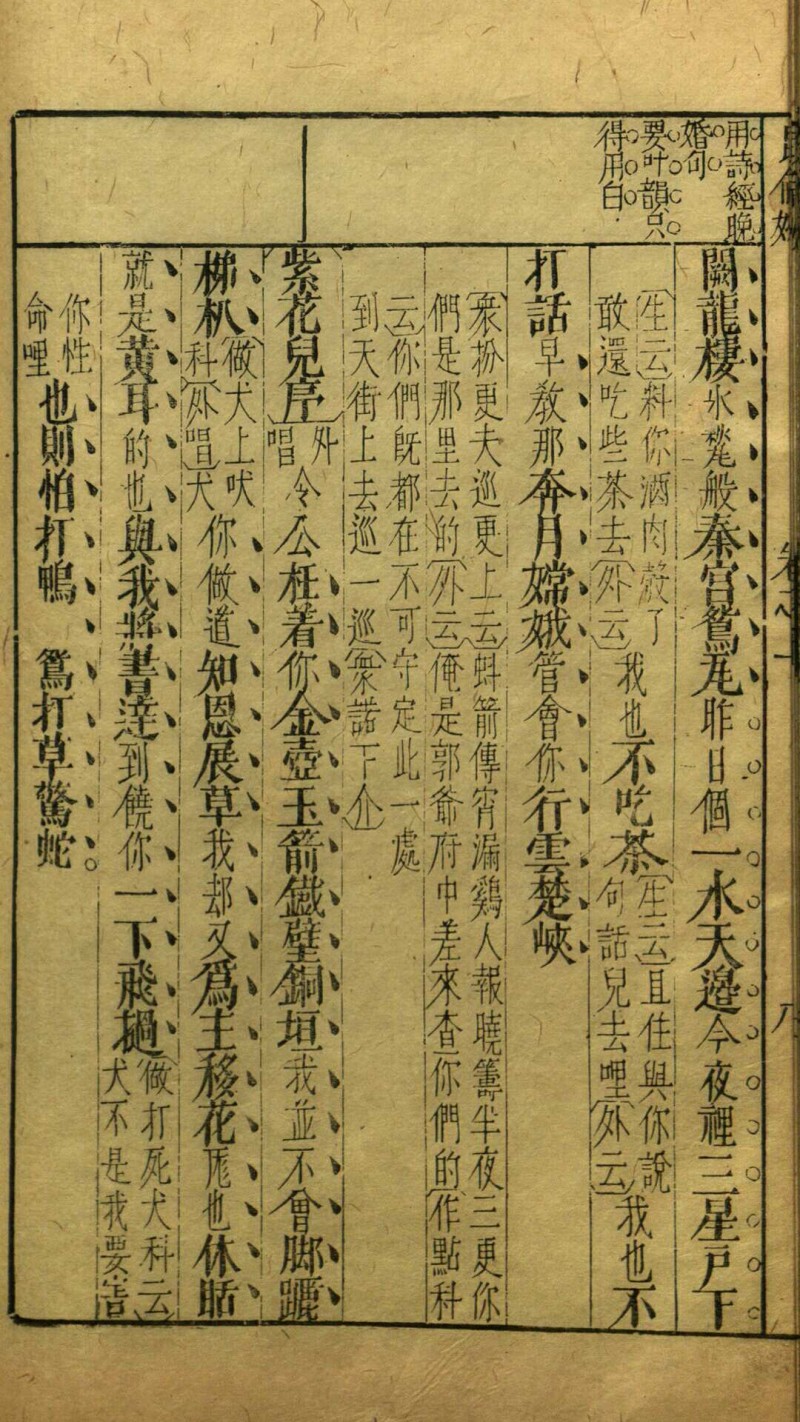 用詩經晚
婚句
要叶韻只
得用白
闕龍棲氷甃般秦宮鴛瓦昨日個一水天邊今夜裡三星戶下
生云料你酒肉㲉了
敢還吃些茶去外云
我也不吃茶
生云且住與你說
句話兒去哩外云
我也不
打話早敎那奔月嫦娥管會你行雲楚峽
衆扮更夫巡更上云蚪箭傳宵漏鷄人報曉籌半夜三更你
們是那里去的外云俺是郭爺府中差來查你們的作點科
云你們旣都在不可守定此一處
到天街上去巡一巡衆諾下介
紫花兒序
外
唱
令公枉着你金壺玉箭鐵壁銅垣我並不曾脚躧
梯杌
做犬上吠
科外唱犬
你做道知恩展草我却又爲主移花厖也休聒
就是黄耳的也與我將書達到饒你一下飛檛
做打死犬科云
犬不是我要害
你性
命哩
也則怕打鴨鴛打草驚蛇
卷下
八